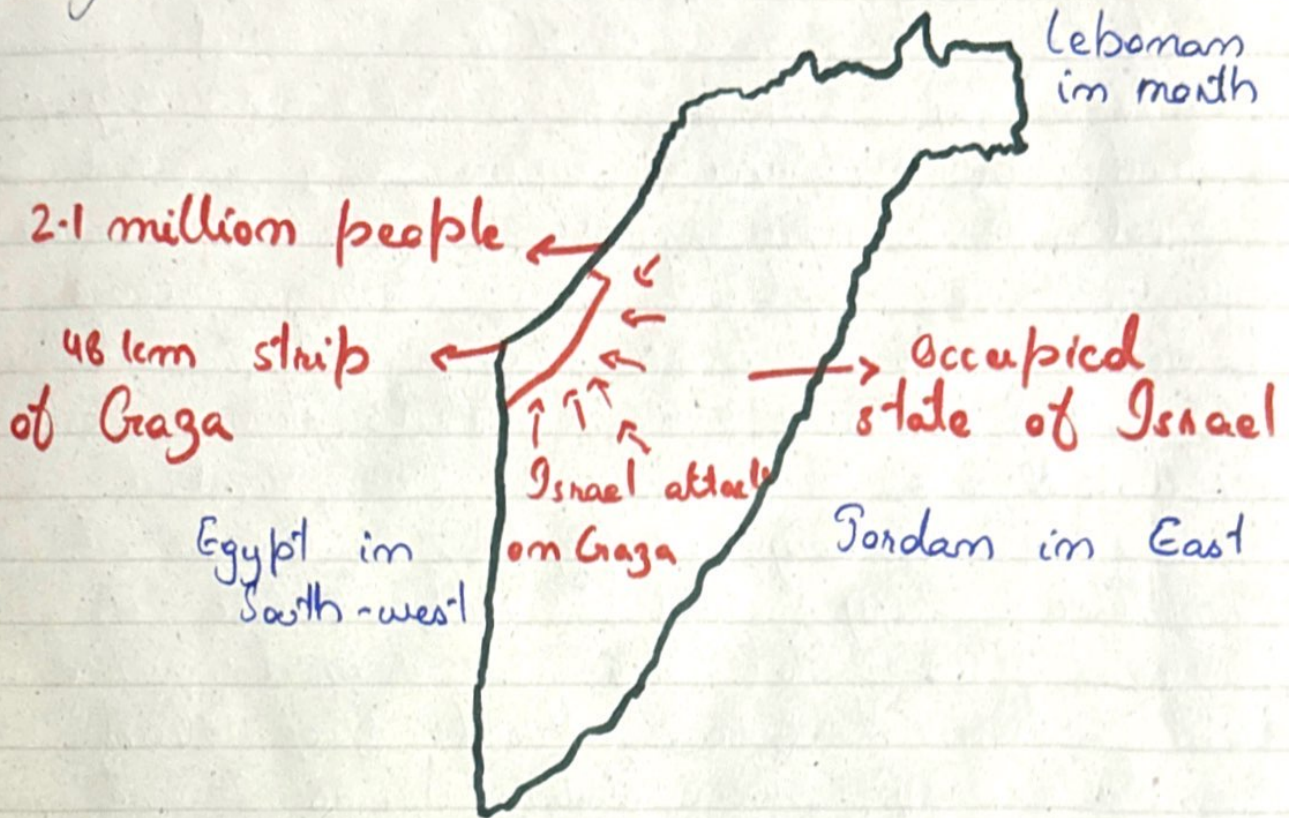 Lebonan
in north
2.1 million people
48 km strip
of Gaza
Occupied
state of Israel
Israel attack
on Gaza
Egypt in
South-west
Jordan in East